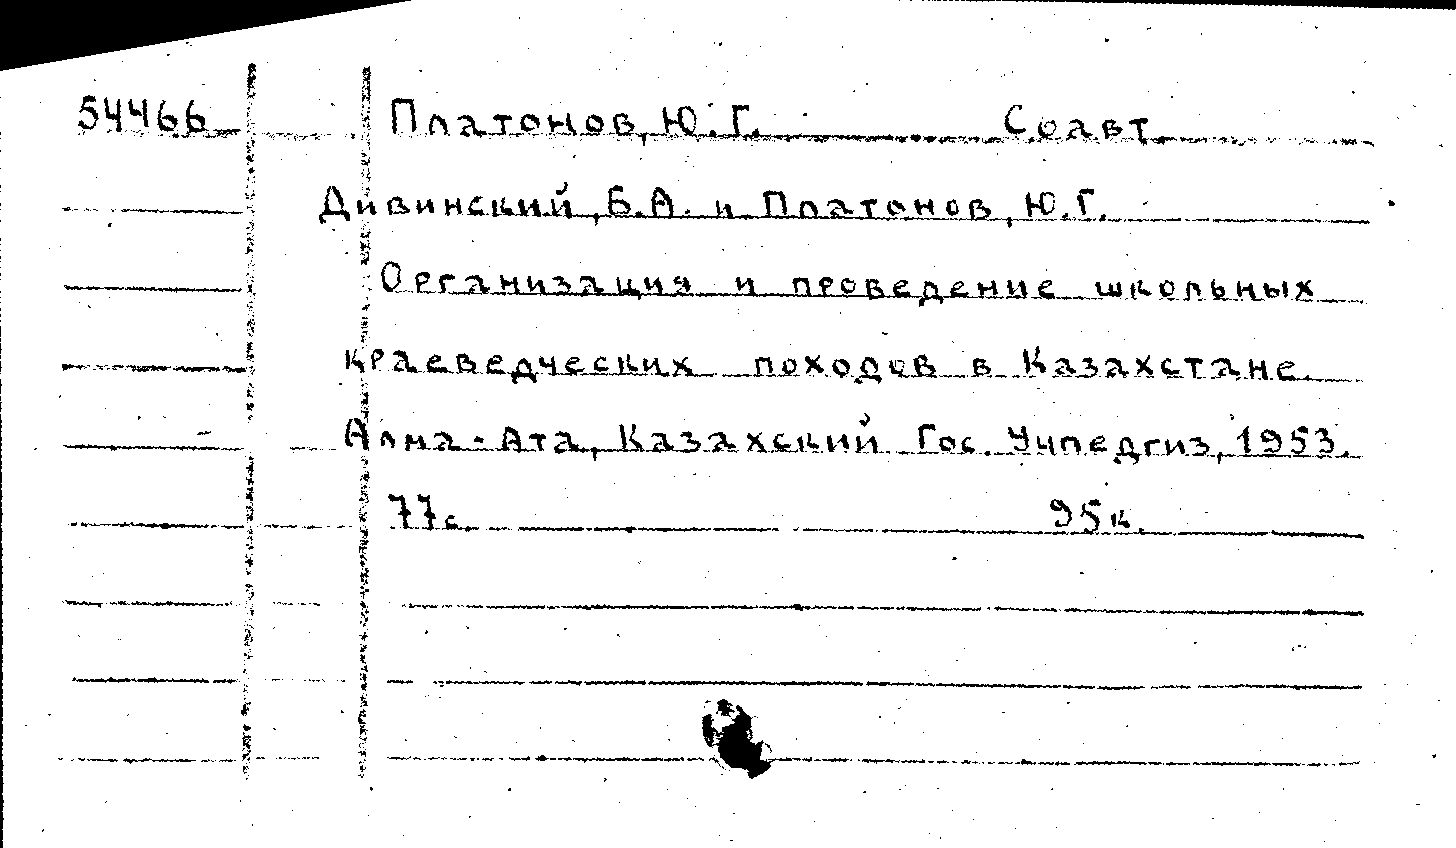 54466 Платонов, Ю.Г. Соавт.
Дивинский, Б.А. и Платонов, Ю.Г.
Организация и проведение школьных
краеведческих походов в Казахстане.
Алма-Ата, Казахский Гос. Учпедгиз, 1953.
77с. 95к.